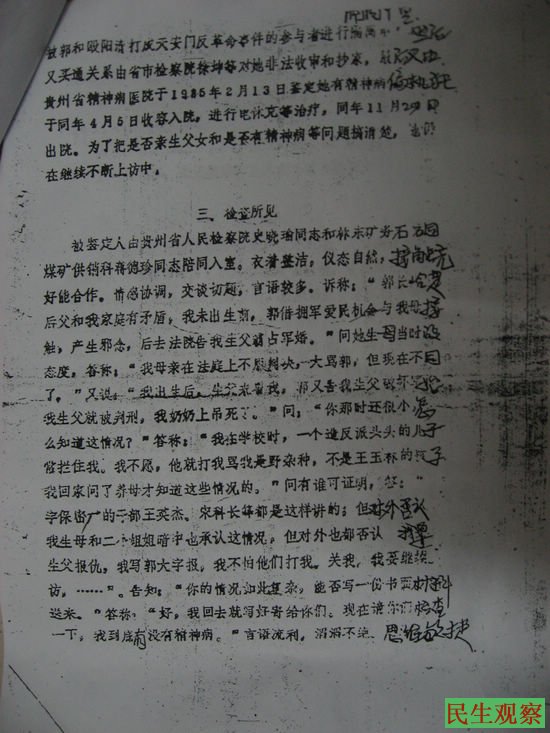 被郭和欧阳清打成天安门反革命事件的参与者进行
又买通关系由省市检察院徐坤等对她非法收审和抄家，
贵州省精神病医院于1985年2月13日鉴定她有精神病
于同年4月5日收容入院，进行电休克等治疗，同年11月29日
出院。为了把是否亲生父女和是否有精神病等问题搞清楚，
在继续不断上访中。
三、检查所见
被鉴定人由贵州省人民检察院史晓瑜同志和林东矿务石
煤矿供销科蒋德珍同志陪同入室。衣着整洁，仪态自然，接触
好能合作。情感协调，交谈切题，言语较多。诉称：“郭长
后父和我家庭有矛盾，我未出生前，郭借拥军爱民机会与我母接
触，产生邪念，后去法院告我生父霸占军婚。”问她生母当时
态度，答称：“我母亲在法庭上不服判决，大骂郭，但现在不同
了。”又说：“我出生后，生父来看我，郭又告我生父破坏
我生父就被判刑，我奶奶上吊死了。”问：“你那时还很小怎
么知道这情况？”答称：“我在学校时，一个造反派头头的儿子
常拦住我。我不愿，他就打我骂我是野杂种，不是王玉林的孩子
我回家问了养母才知道这些情况的。”问有谁可证明，答：“
字保密厂的干部王英杰。宋科长等都是这样讲的；但对外否认
我生母和二个姐姐暗中也承认这情况，但对外也都否认
生父报仇，我写郭大字报，我不怕他们打我。关我，我要继续
访，……”。告知：“你的情况如此复杂，能否写一份书面材料
送来。”答称：“好，我回去就写好寄给你们。现在请你们检查
一下，我到底有没有精神病。”言语流利，滔滔不绝，思维敏捷
民生观察